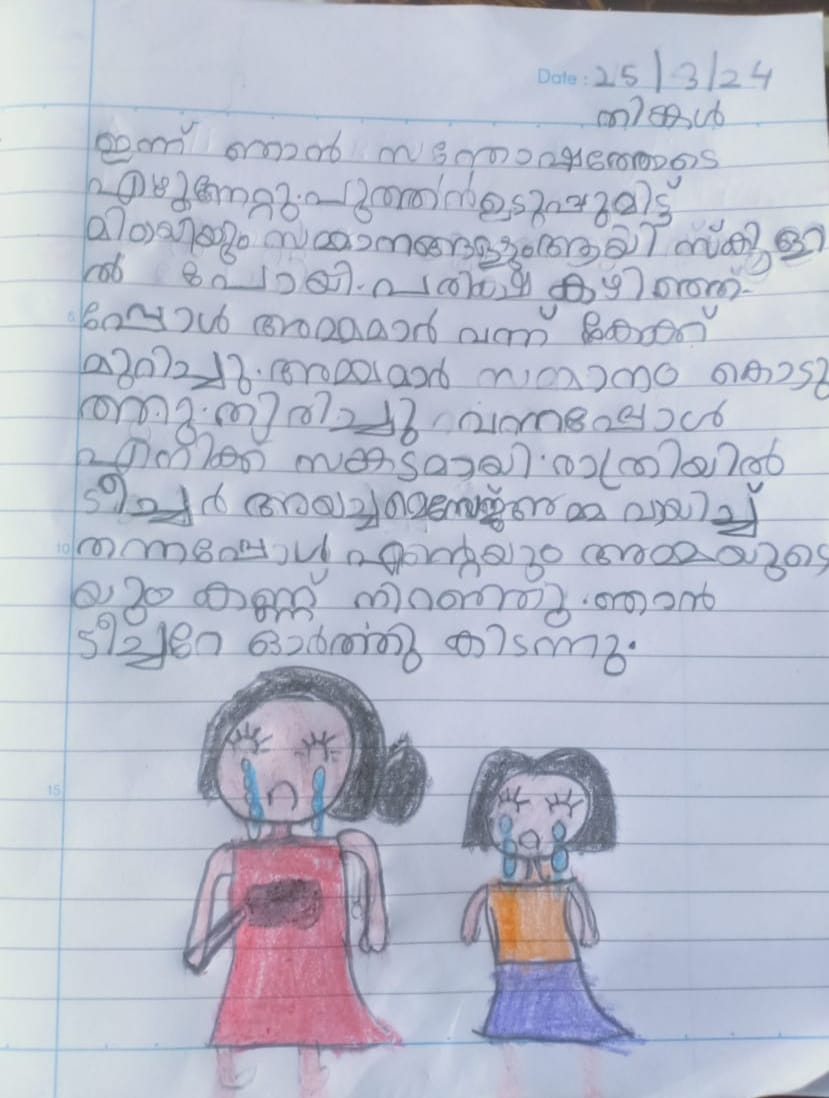 Date : 25/3/24
തിങ്കൾ
ഇന്ന് ഞാൻ സന്തോഷത്തോടെ
എഴുന്നേറ്റു. പുത്തൻ ഉടുപ്പുമിട്ട്
മിഠായിയും സമ്മാനങ്ങളും ആയി സ്കൂളി
ൽ പോയി. പരീക്ഷ കഴിഞ്ഞ്
പ്പോൾ അമ്മമാർ വന്ന് കേക്ക്
മുറിച്ചു. അമ്മമാർ സമ്മാനം കൊടു
ത്തു. തിരിച്ചു വന്നപ്പോൾ
എനിക്ക് സങ്കടമായി. രാത്രിയിൽ
ടീച്ചർ അയച്ച മെസേജ് അമ്മ വായിച്ച്
തന്നപ്പോൾ എന്റെയും അമ്മയുടെ
യും കണ്ണ് നിറഞ്ഞു. ഞാൻ
ടീച്ചറേ ഓർത്തു കിടന്നു.
10
15